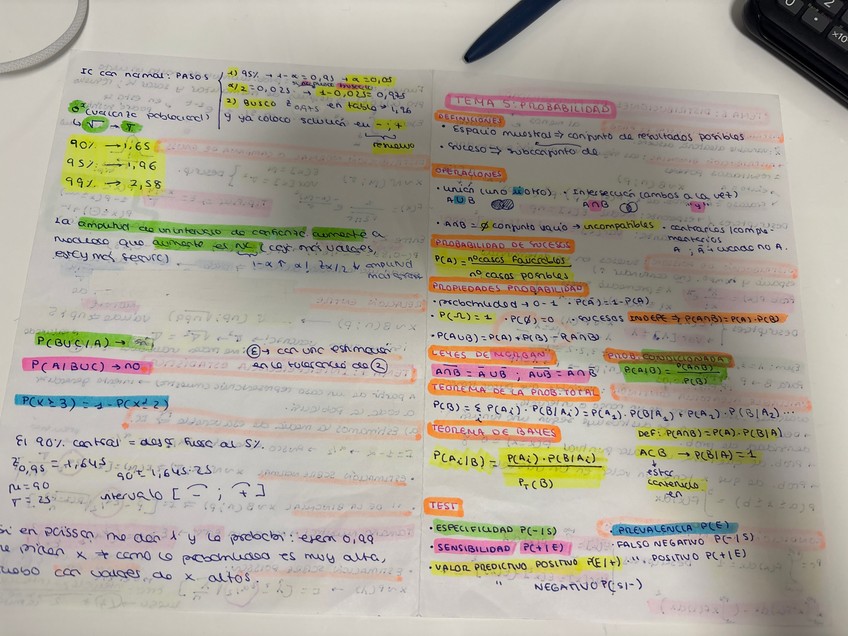 IC con normal: PASOS
1) 95% → 1-α = 0,95 → α = 0,05
α/2 = 0,025 → 1-0,025 = 0,975
2) Busco Z 0,975 en tabla → 1,96
y ya coloco solución en - ; +
σ² (varianza poblacional)
↳ √ → σ
90% → 1,65
95% → 1,96
99% → 2,58
La amplitud de un intervalo de confianza aumenta a
medida que aumenta el NC (cojo más valores,
estoy más seguro).
1-α ↑, α↓ Zα/2 ↓ amplitud
P(BUC/A) → sí
P(A/BUC) → no
E → con una estimación
en la tolerancia de 2
P(x≥3) = 1 - P(x≤2)
El 90% central = dejas fuera al 5%.
Z0,95 = 1,645
90 ± 1,645·25
μ=90
σ=25
intervalo [ - ; + ]
en poisson me dan λ y la probabi: eren 0,99
piden x → como la probabilidad es muy alta,
con valores de x altos.
TEMA 5: PROBABILIDAD
DEFINICIONES
• Espacio muestral ⇒ conjunto de resultados posibles
• Suceso ⇒ subconjunto de
OPERACIONES
• Unión (uno u otro) • Intersección (ambos a la vez)
A U B A∩B "y"
• A∩B = ∅ conjunto vacío → incompatibles • contrarios/comple-
mentarios
A ; Ā → cuando no A.
PROBABILIDAD DE SUCESO
P(A) = nº casos favorables
nº casos posibles
PROPIEDADES PROBABILIDAD
• probabilidad → 0-1 • P(Ā) = 1-P(A)
• P(Ω) = 1 • P(∅) = 0 • sucesos INDEPE ⇒ P(A∩B) = P(A)·P(B)
• P(AUB) = P(A) + P(B) - P(A∩B)
LEYES DE MORGAN PROB. CONDICIONADA
A∩B = Ā U B̄ ; AUB = Ā ∩ B̄ P(A/B) = P(A∩B)
P(B)
TEOREMA DE LA PROB. TOTAL
P(B) = Σ P(Ai) · P(B/Ai) = P(A1)·P(B/A1) + P(A2)·P(B/A2) ...
i
TEOREMA DE BAYES Def: P(A∩B) = P(A)·P(B/A)
P(Ai/B) = P(Ai)·P(B/Ai)
PT(B)
ACB → P(B/A) = 1
↓
estar
contenido
en
TEST
• ESPECIFICIDAD P(-/S) • PREVALENCIA P(E)
• SENSIBILIDAD P(+/E) • FALSO NEGATIVO P(-/S)
• VALOR PREDICTIVO POSITIVO P(E/+) • " POSITIVO P(+/E)
" NEGATIVO P(S/-)